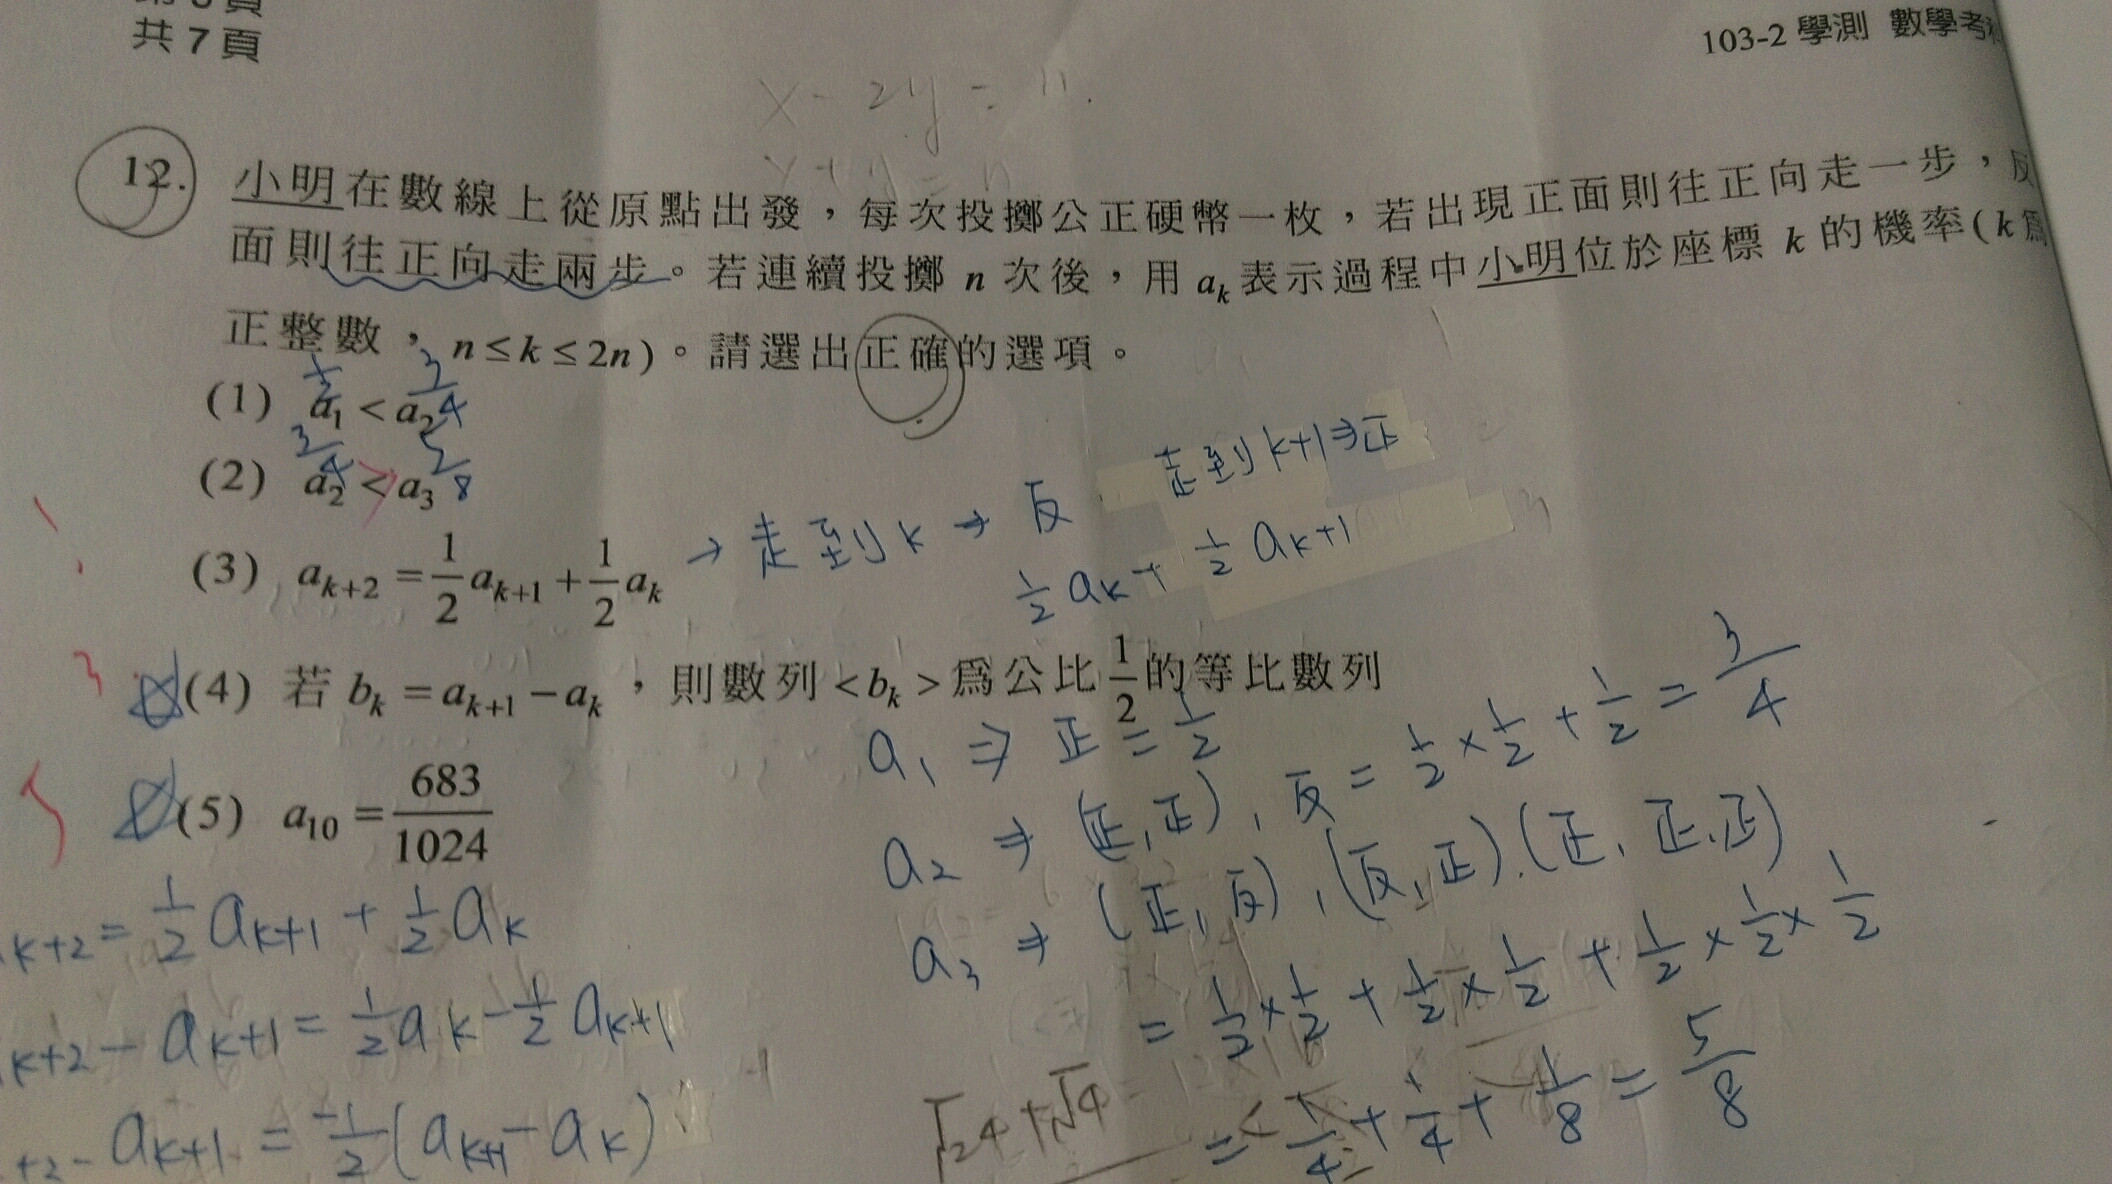 共 7 頁
103-2 學測 數學考
x - 2y = 11.
12. 小明在數線上從原點出發，每次投擲公正硬幣一枚，若出現正面則往正向走一步，反
面則往正向走兩步。若連續投擲 n 次後，用 aₖ 表示過程中小明位於座標 k 的機率(k 為
正整數， n ≤ k ≤ 2n)。請選出正確的選項。
1/2 3/4
(1) a₁ < a₂
3/4 > 5/8
(2) a₂ < a₃
(3) aₖ₊₂ = 1/2 aₖ₊₁ + 1/2 aₖ → 走到 k → 反 走到 k+1 ⇒ 正
1/2 aₖ + 1/2 aₖ₊₁
(4) 若 bₖ = aₖ₊₁ − aₖ ，則數列 < bₖ > 爲公比 1/2 的等比數列
(5) a₁₀ = 683/1024
a₁ ⇒ 正 = 1/2
a₂ ⇒ (正,正), 反 = 1/2 × 1/2 + 1/2 = 3/4
a₃ ⇒ (正,反), (反,正). (正, 正,正)
= 1/2 × 1/2 + 1/2 × 1/2 + 1/2 × 1/2 × 1/2
= 1/4 + 1/4 + 1/8 = 5/8
k+2 = 1/2 aₖ₊₁ + 1/2 aₖ
k+2 − aₖ₊₁ = 1/2 aₖ − 1/2 aₖ₊₁
+2 − aₖ₊₁ = −1/2 (aₖ₊₁ − aₖ)
√24 + √4